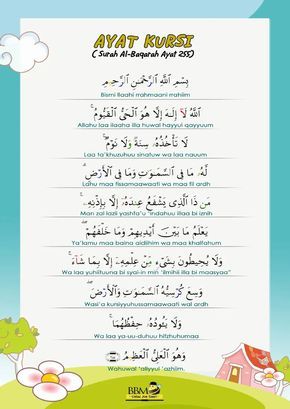 AYAT KURSI
( Surah Al-Baqarah Ayat 255)
بِسْمِ اللَّهِ الرَّحْمَٰنِ الرَّحِيمِ
Bismi llaahi rrahmaani rrahiim
اللَّهُ لَا إِلَٰهَ إِلَّا هُوَ الْحَيُّ الْقَيُّومُ ۚ
Allahu laa ilaaha illa huwal hayyul qayyuum
لَا تَأْخُذُهُ سِنَةٌ وَلَا نَوْمٌ ۚ
Laa ta'khuzuhuu sinatuw wa laa nauum
لَّهُ مَا فِي السَّمَاوَاتِ وَمَا فِي الْأَرْضِ ۗ
Lahu maa fissamaawaati wa maa fil ardh
مَن ذَا الَّذِي يَشْفَعُ عِندَهُ إِلَّا بِإِذْنِهِ ۚ
Man zal lazii yashfa'u 'indahuu illaa bi iznih
يَعْلَمُ مَا بَيْنَ أَيْدِيهِمْ وَمَا خَلْفَهُمْ ۖ
Ya'lamu maa baina aidiihim wa maa khalfahum
وَلَا يُحِيطُونَ بِشَيْءٍ مِّنْ عِلْمِهِ إِلَّا بِمَا شَاءَ ۚ
Wa laa yuhiituuna bi syai-in min 'ilmihii illa bi maasyaa'
وَسِعَ كُرْسِيُّهُ السَّمَاوَاتِ وَالْأَرْضَ ۖ
Wasi'a kursiyyuhussamaawaati wal ardh
وَلَا يَئُودُهُ حِفْظُهُمَا ۚ
Wa laa ya-uu-duhuu hifzhuhumaa
وَهُوَ الْعَلِيُّ الْعَظِيمُ
Wahuwal 'aliyyul 'azhiim.
BBM